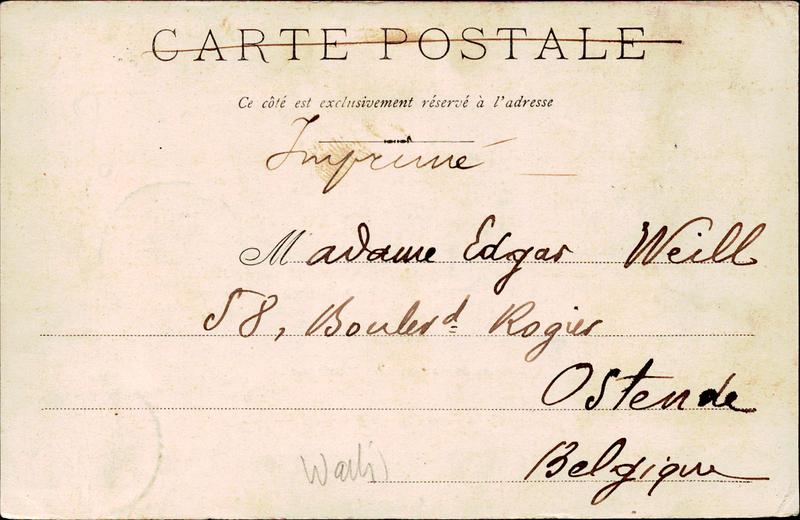 CARTE POSTALE
Ce côté est exclusivement réservé à l'adresse
Imprimé
Madame Edgar Weill
58, Boulevd Rogier
Ostende
Belgique